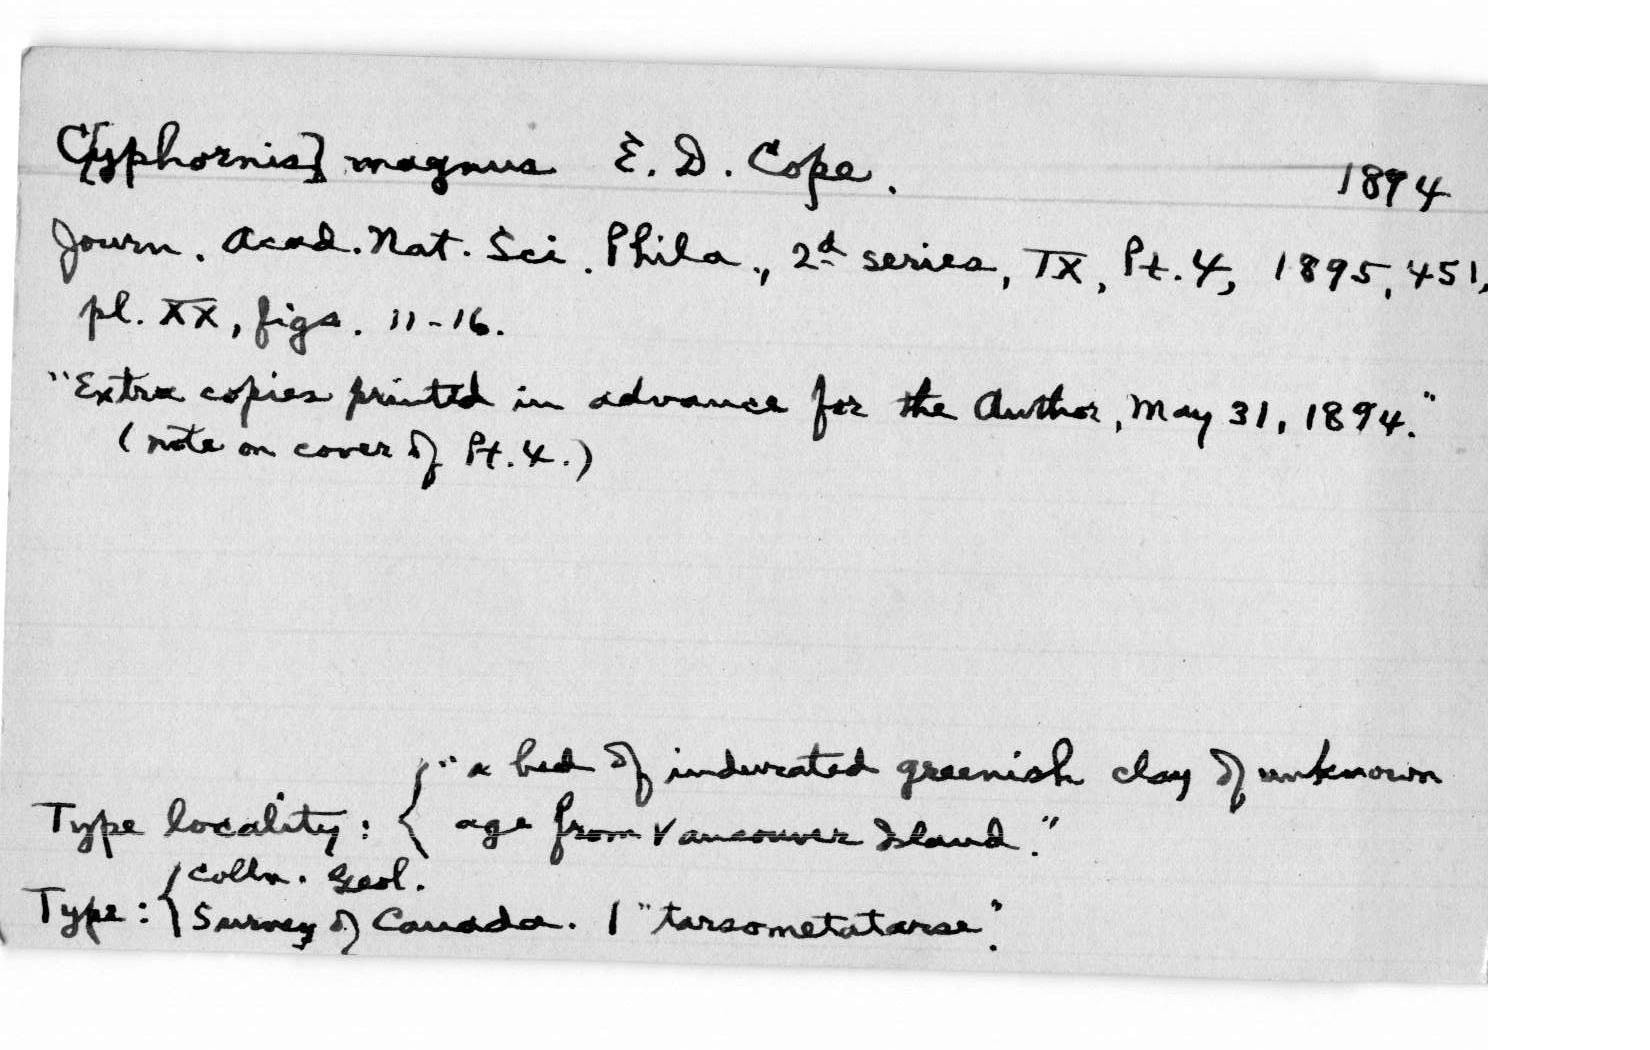 C[yphornis] magnus E. D. Cope. 1894
Journ. Acad. Nat. Sci. Phila., 2d series, IX, Pt. 4, 1895, 451,
pl. XX, figs. 11-16.
"Extra copies printed in advance for the Author, May 31, 1894."
(note on cover of Pt. 4.)
"a bed of indurated greenish clay of unknown
Type locality: { age from Vancouver Island."
Colln. Geol.
Type: { Survey of Canada. 1 "tarsometatarse".